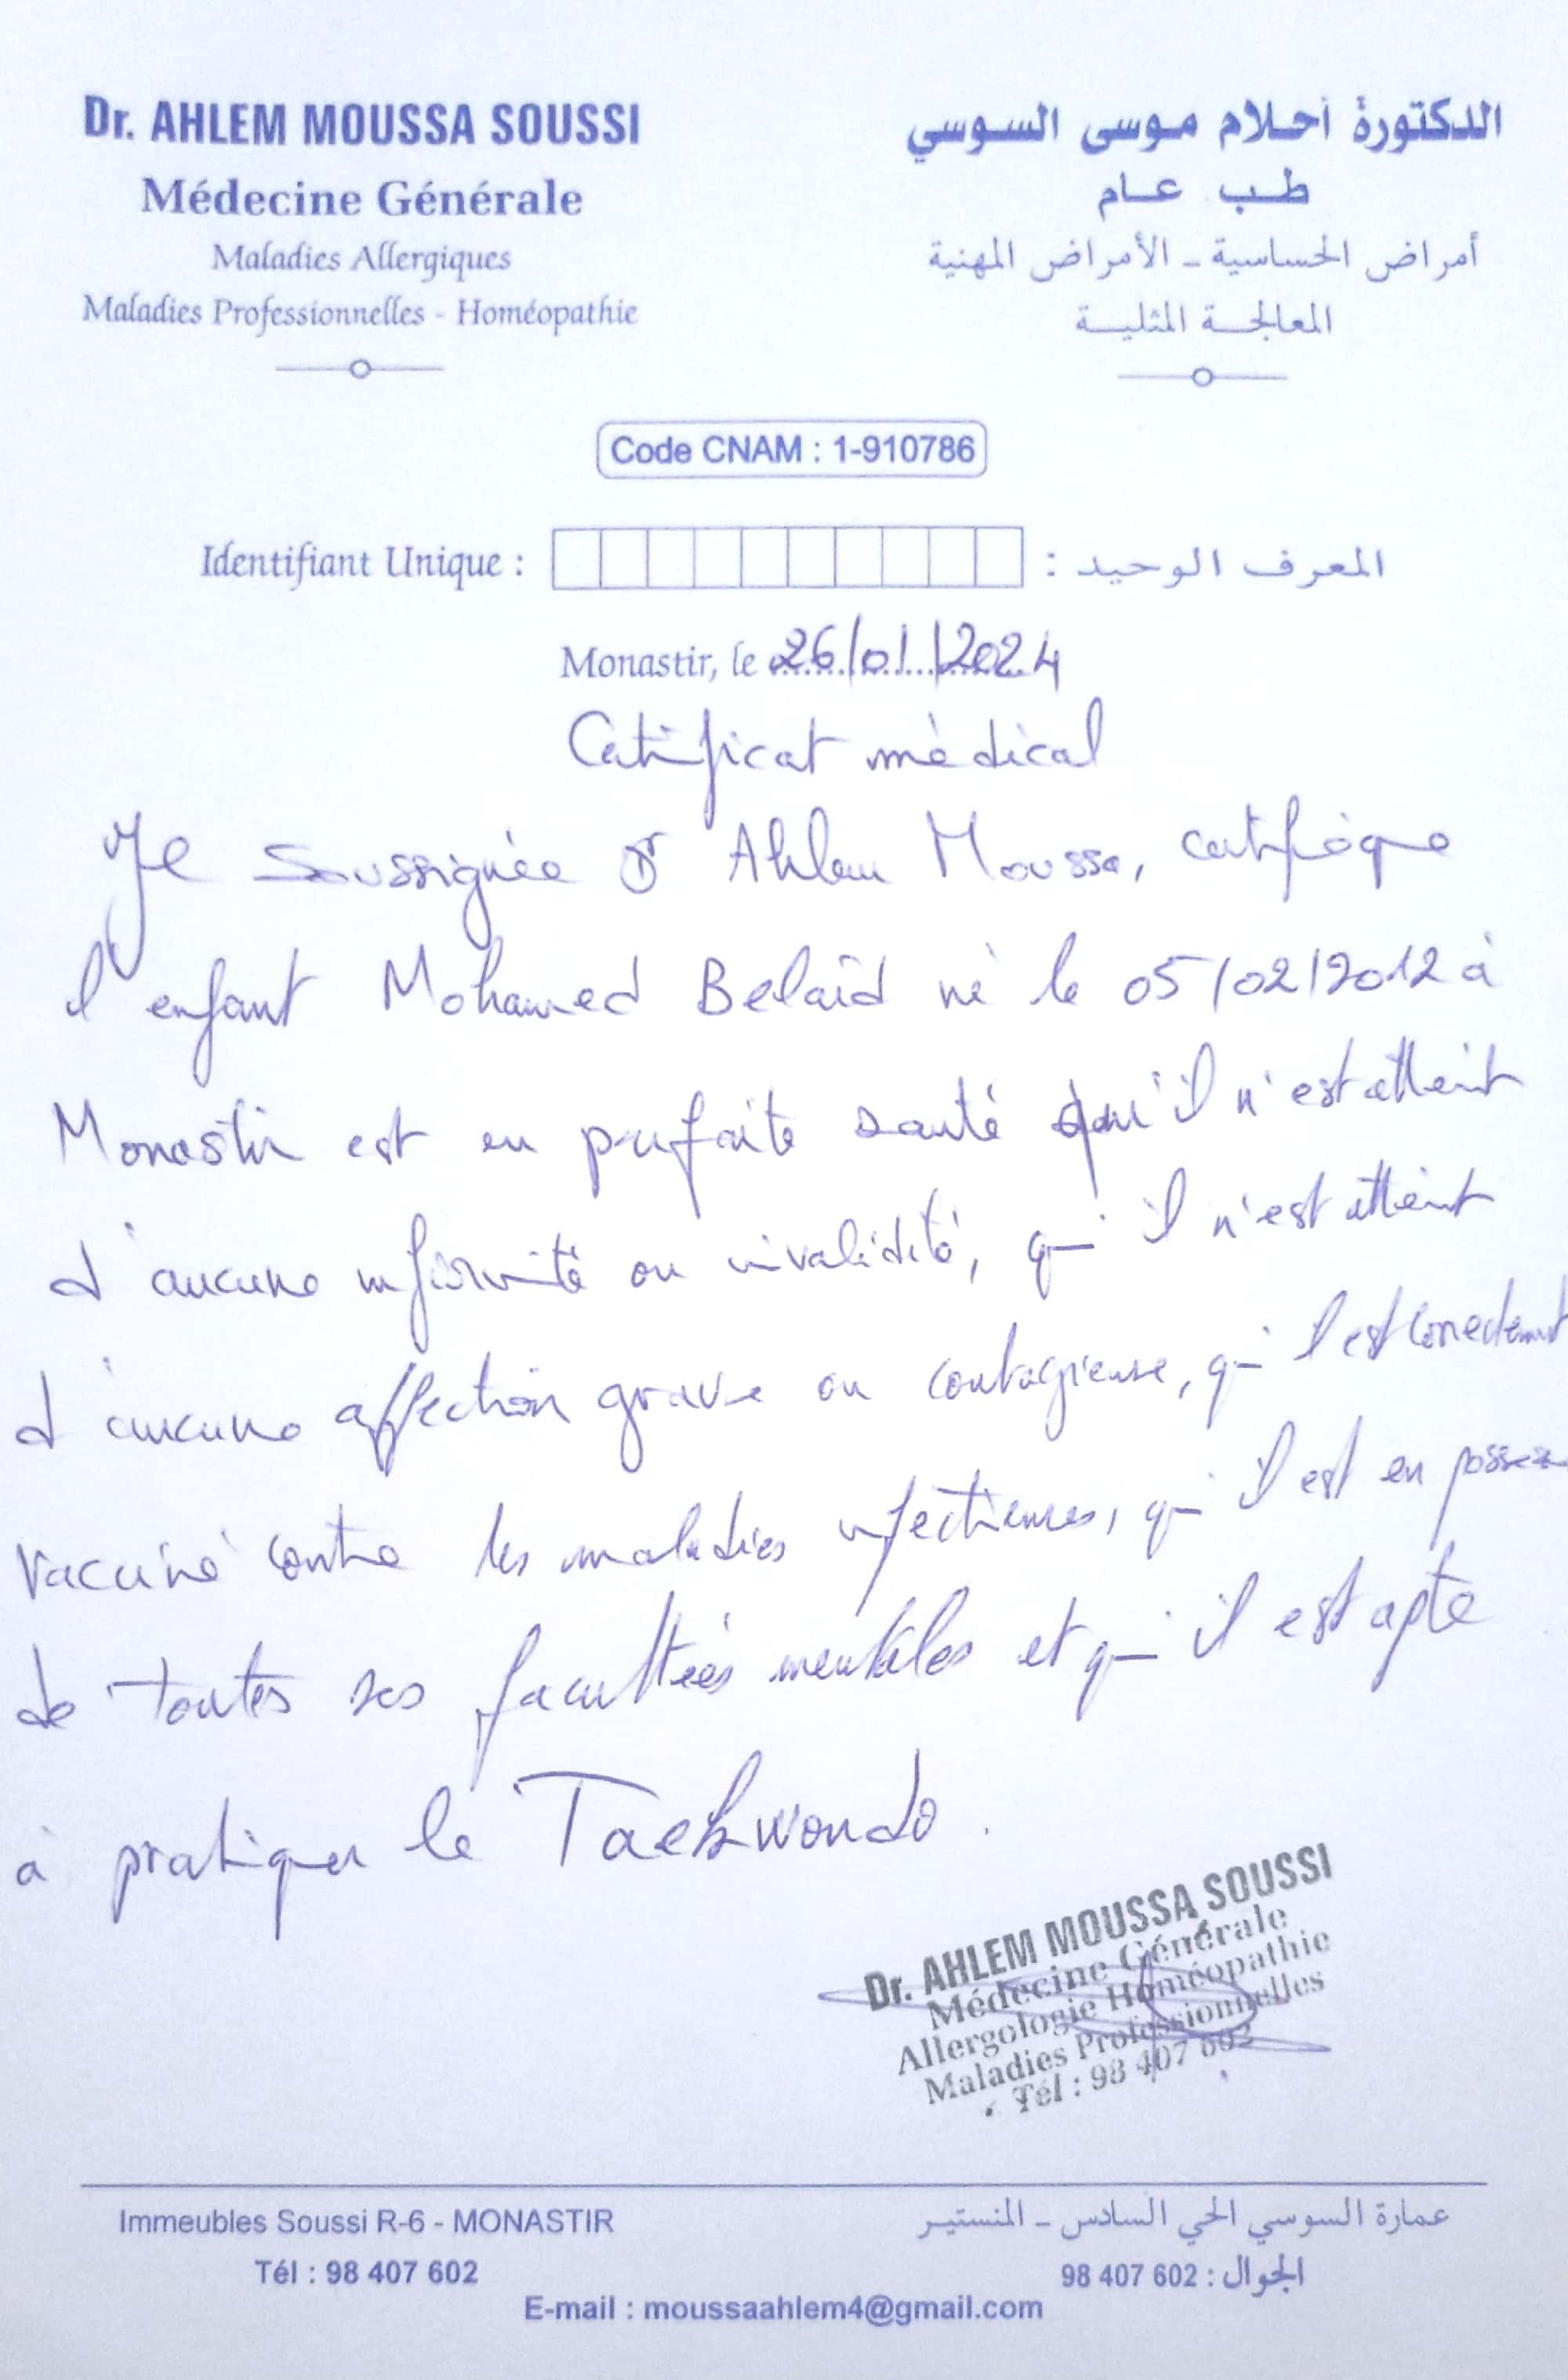 Dr. AHLEM MOUSSA SOUSSI
Médecine Générale
Maladies Allergiques
Maladies Professionnelles - Homéopathie
الدكتورة أحلام موسى السوسي
طب عام
أمراض الحساسية - الأمراض المهنية
المعالجة المثلية
Code CNAM : 1-910786
Identifiant Unique : المعرف الوحيد :
Monastir, le 26/01/2024
Certificat mèdical
Je soussignée Dr Ahlem Moussa, certifie que
l'enfant Mohamed Belaid né le 05/02/2012 à
Monastir est en parfaite santé qu'il n'est atteint
d'aucune infirmité ou invalidité, qu'il n'est atteint
d'aucune affection grave ou contagieuse, qu'il est correctement
vacciné contre les maladies infectieuses, qu'il est en
de toutes ses facultées mentales et qu'il est apte
à pratiquer le Taekwondo.
Dr. AHLEM MOUSSA SOUSSI
Médecine Générale
Allergologie Homéopathie
Maladies Professionnelles
Tél : 98 407 602
Immeubles Soussi R-6 - MONASTIR
Tél : 98 407 602
عمارة السوسي الحي السادس - المنستير
الجوال : 602 407 98
E-mail : moussaahlem4@gmail.com